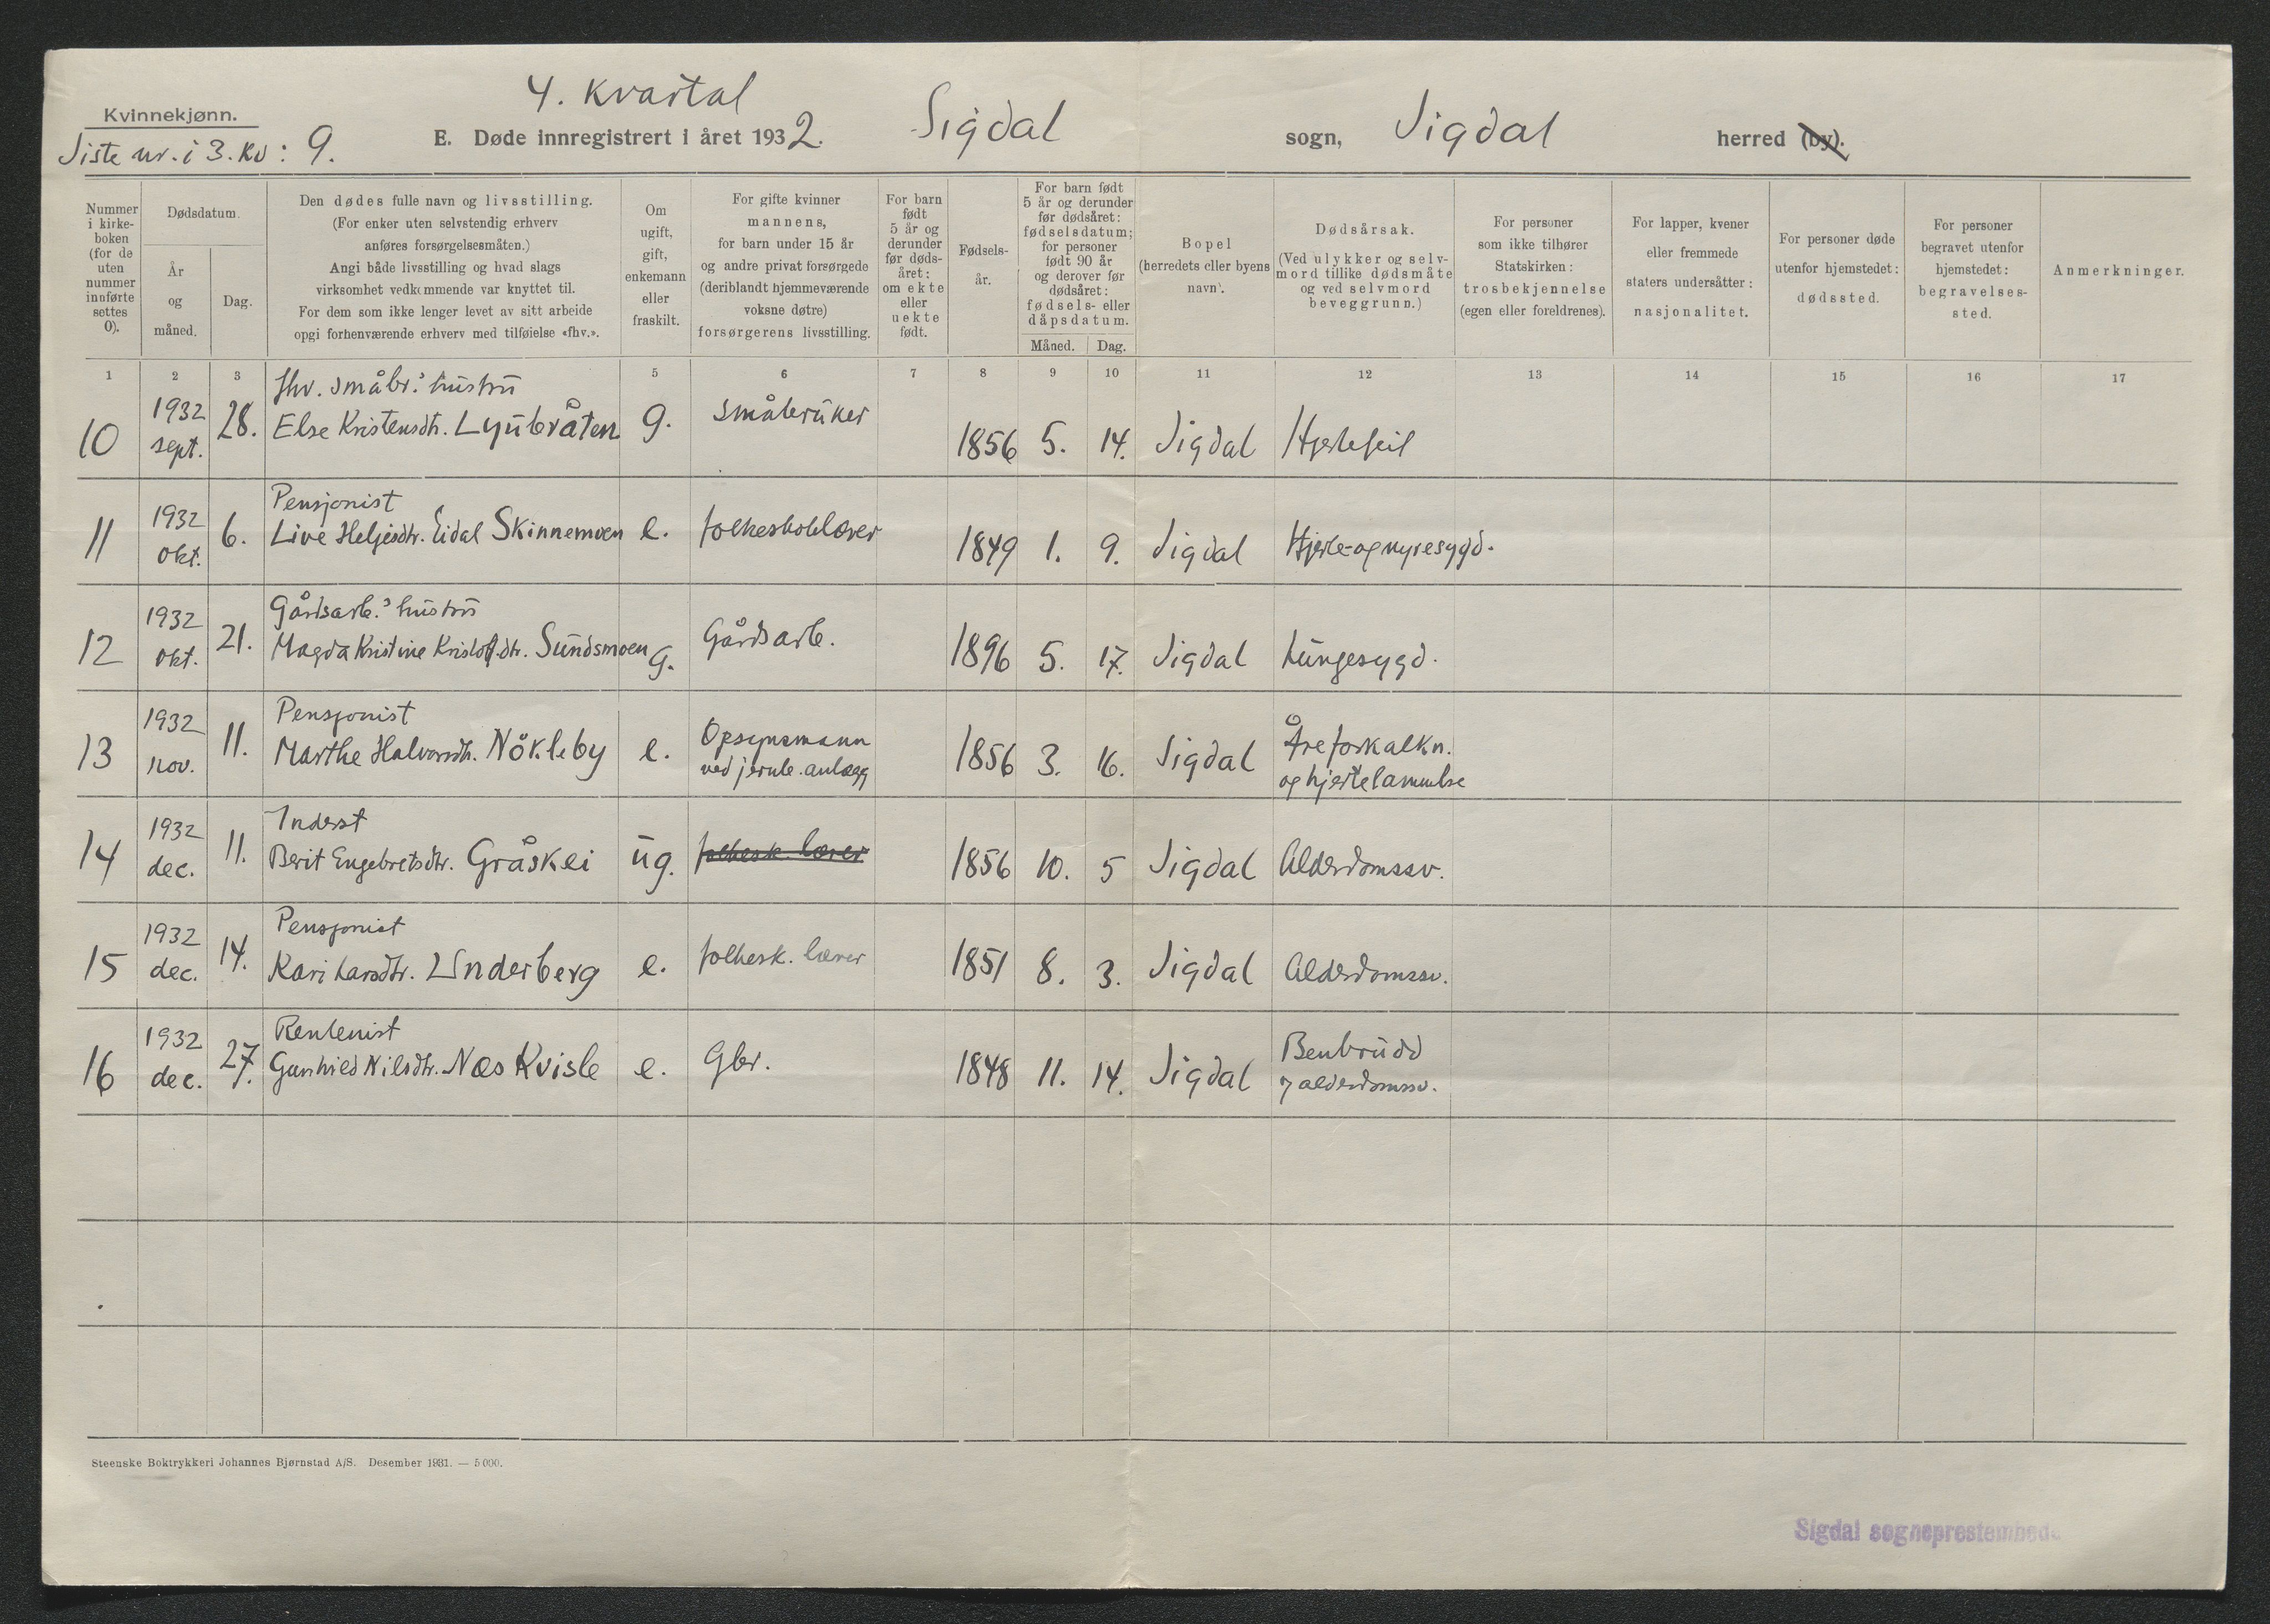 4. Kvartal
Kvinnekjønn.
Siste nr. i 3. Kv: 9.
E. Døde innregistrert i året 1932. Sigdal sogn, Sigdal herred (by).
Nummer i kirke- boken (for de uten nummer innførte settes 0).
Dødsdatum.
År og måned.
Dag.
Den dødes fulle navn og livsstilling.
(For enker uten selvstendig erhverv
anføres forsørgelsesmåten.)
Angi både livsstilling og hvad slags
virksomhet vedkommende var knyttet til.
For dem som ikke lenger levet av sitt arbeide
opgi forhenværende erhverv med tilføielse «fhv.».
Om ugift, gift, enkemann eller fraskilt.
For gifte kvinner
mannens,
for barn under 15 år
og andre privat forsørgede
(deriblandt hjemmeværende
voksne døtre)
forsørgerens livsstilling.
For barn født 5 år og derunder før døds- året: om ekte eller uekte født.
Fødsels- år.
For barn født
5 år og derunder
før dødsåret:
fødselsdatum;
for personer
født 90 år
og derover før
dødsåret:
fødsels- eller
dåpsdatum.
Måned. Dag.
Bopel
(herredets eller byens
navn).
Dødsårsak.
(Ved ulykker og selv-
mord tillike dødsmåte
og ved selvmord
beveggrunn.)
For personer
som ikke tilhører
Statskirken:
trosbekjennelse
(egen eller foreldrenes).
For lapper, kvener
eller fremmede
staters undersåtter:
nasjonalitet.
For personer døde
utenfor hjemstedet:
dødssted.
For personer
begravet utenfor
hjemstedet:
begravelses-
sted.
Anmerkninger.
1 2 3 5 6 7 8 9 10 11 12 13 14 15 16 17
fhv. småbr.s hustru
10 1932 sept. 28. Else Kristensdtr. Lyubråten g. småbruker 1856 5. 14. Sigdal Hjertefeil
Pensjonist
11 1932 okt. 6. Live Helgesdtr. Eidal Skinnemoen e. folkeskolelærer 1849 1. 9. Sigdal Hjerte- og nyresygd.
Gårdsarb.s hustru
12 1932 okt. 21. Magda Kristine Kristoffdtr. Sundsmoen g. Gårdsarb. 1896 5. 17. Sigdal Lungesygd.
Pensjonist
13 1932 nov. 11. Marthe Halvorsdtr. Nökleby e. Opsynsmann ved jernb. anlegg 1856 3. 16. Sigdal Åreforkalkn. og hjertelammelse
Inderst
14 1932 dec. 11. Berit Engebretsdtr. Gråskei ug. folkesk. lærer 1856 10. 5 Sigdal Alderdomssv.
Pensjonist
15 1932 dec. 14. Kari Larsdtr. Underberg e. folkesk. lærer 1851 8. 3. Sigdal Alderdomssv.
Rentenist
16 1932 dec. 27. Gunhild Nilsdtr. Næs Kvisle e. Gbr. 1848 11. 14. Sigdal Benbrudd
alderdomssv.
Steenske Boktrykkeri Johannes Bjørnstad A/S. Desember 1931. — 5000.
Sigdal sogneprestembede